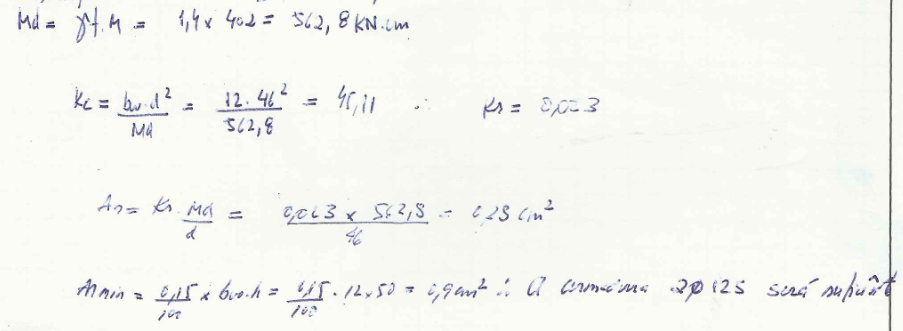 Md = γf.M = 1,4 x 402 = 562,8 KN.cm
Kc = bw.d² / Md = 12.46² / 562,8 = 45,11 ∴ Ks = 0,023
As = Ks.Md / d = 0,023 x 562,8 / 46 = 0,28 cm²
Asmin = 0,15/100 x bw.h = 0,15/100 . 12x50 = 0,9 cm² ∴ A armadura será suficiente